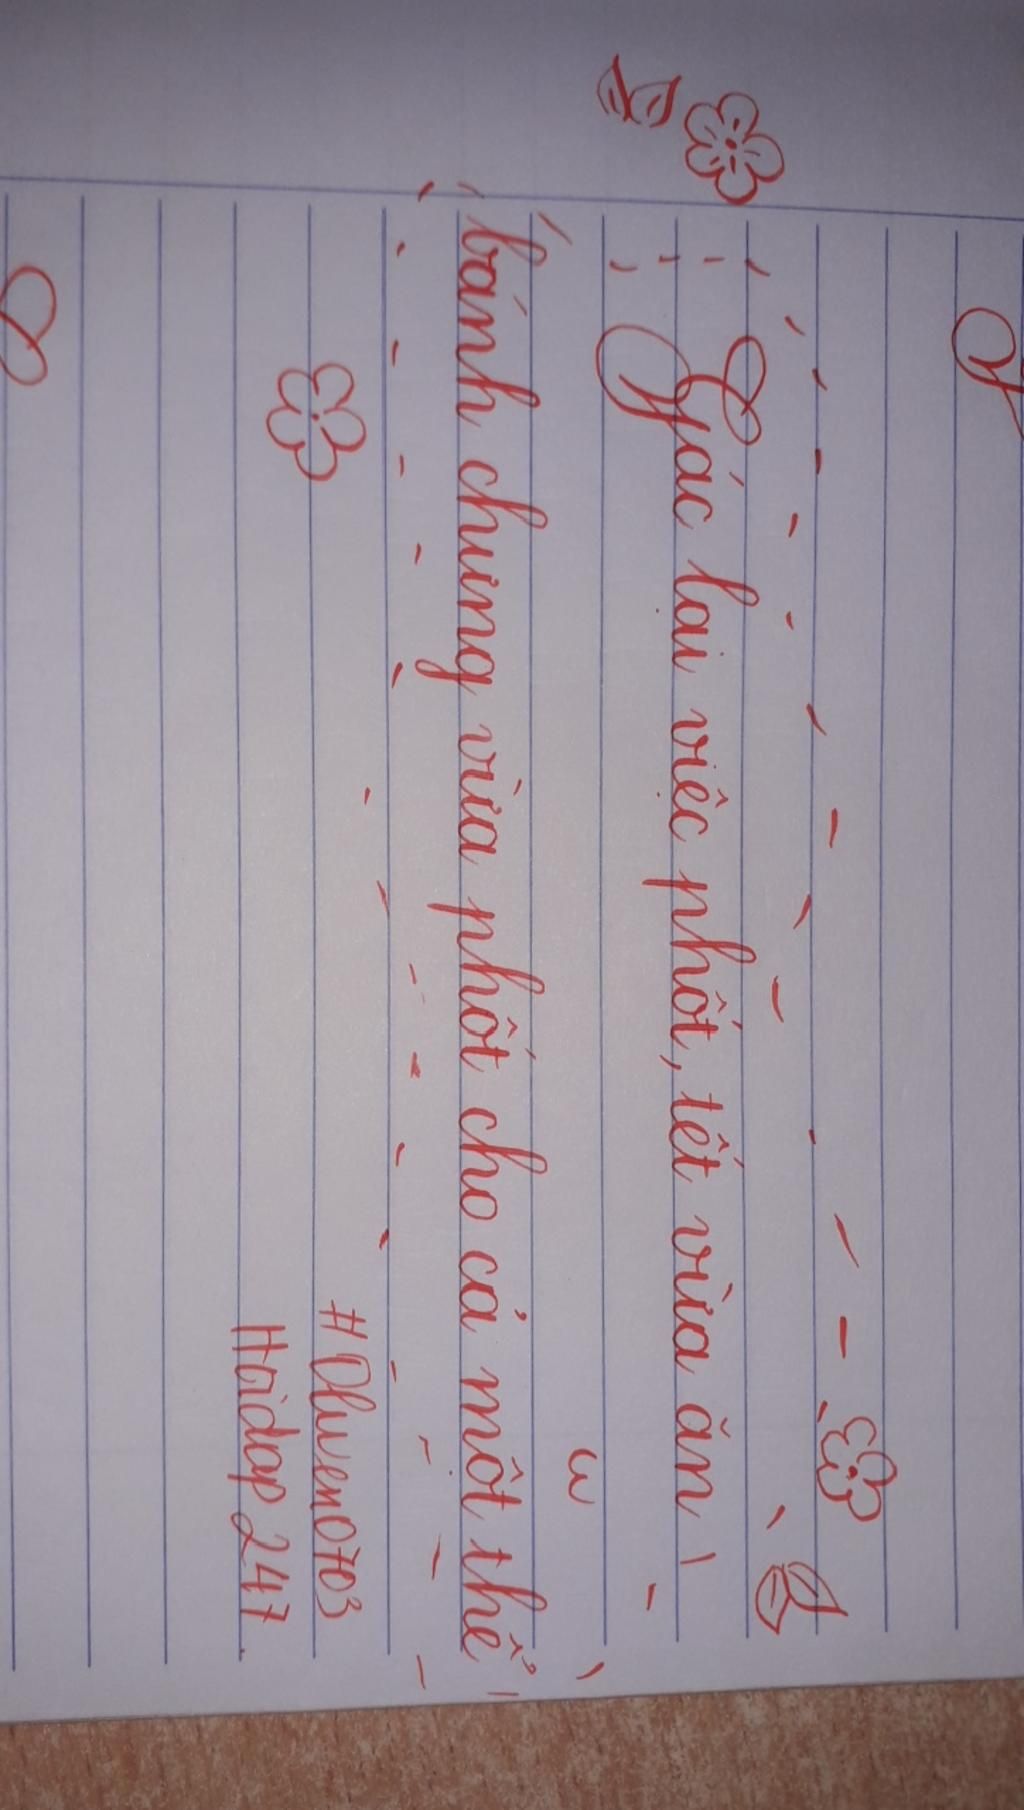 Gác lại việc phốt, tết vừa ăn
bánh chưng vừa phốt cho cả một thể
#Olwen0703
Hoidap247.